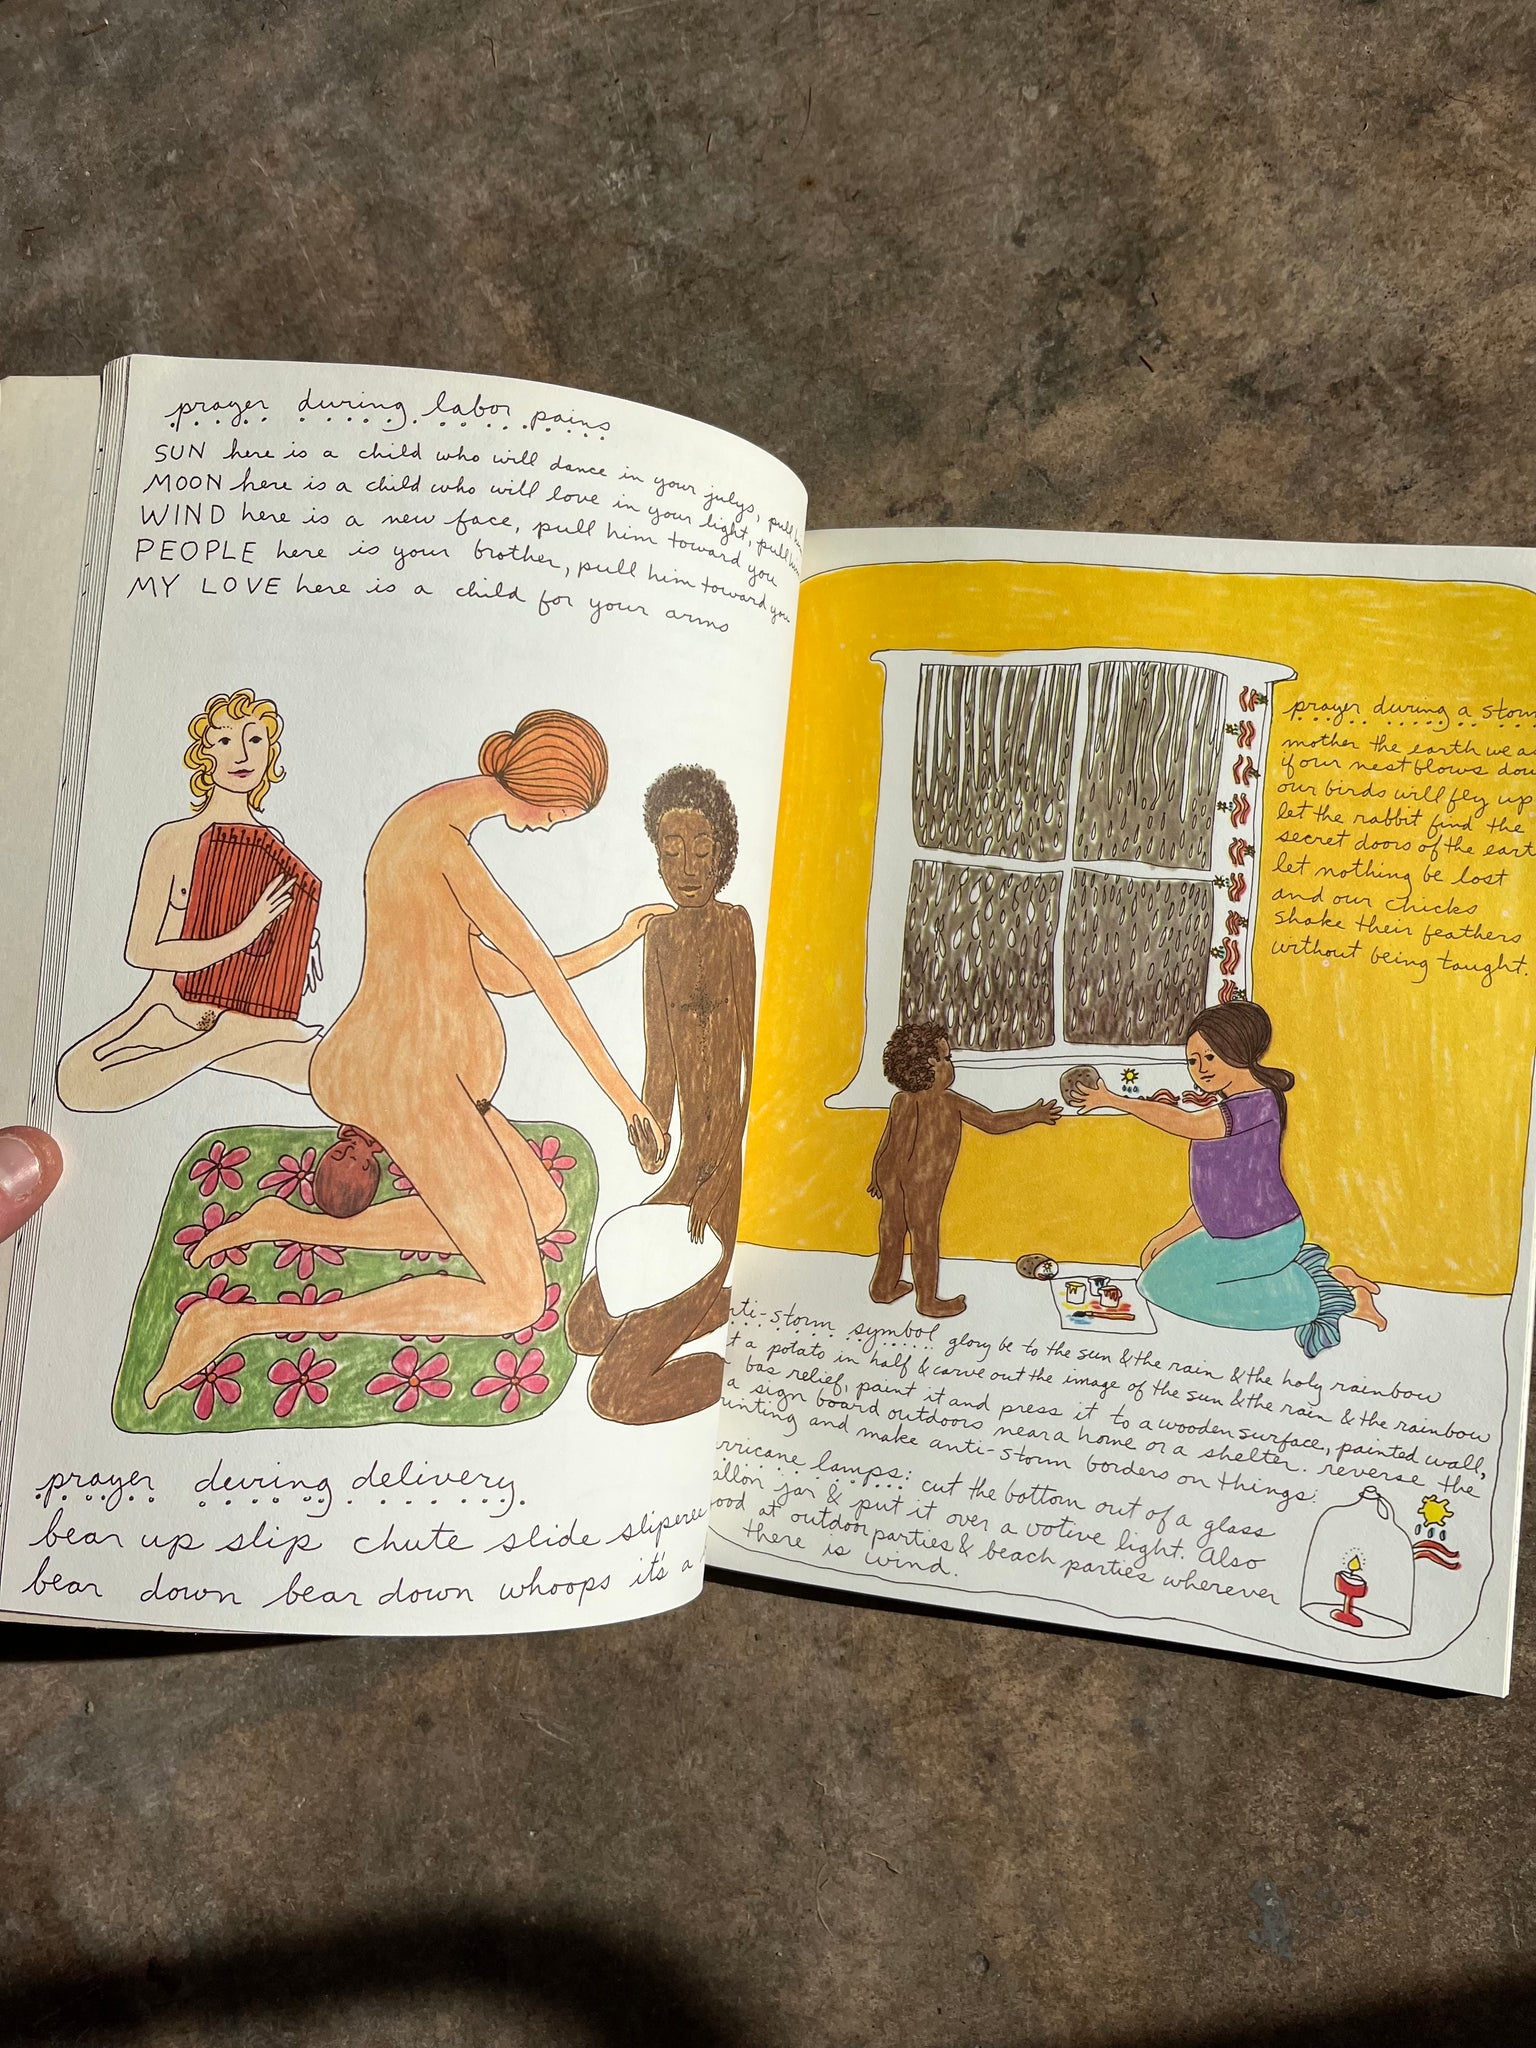 prayer during labor pains
SUN here is a child who will dance in your julys, pull
MOON here is a child who will love in your light, pull
WIND here is a new face, pull him toward you
PEOPLE here is your brother, pull him toward you
MY LOVE here is a child for your arms
prayer during delivery
bear up slip chute slide
bear down bear down whoops it's a
prayer during a storm
mother the earth we
if our nest blows
our birds will fly up
let the rabbit find the
secret doors of the
let nothing be lost
and our chicks
shake their feathers
without being taught.
symbol glory be to the sun & the rain & the holy rainbow
a potato in half & carve out the image of the sun & the rain & the rainbow
bas relief, paint it and press it to a wooden surface, painted wall,
a sign board outdoors near a home or a shelter. reverse the
and make anti-storm borders on things.
lamps: cut the bottom out of a glass
jar & put it over a votive light. Also
at outdoor parties & beach parties wherever
there is wind.